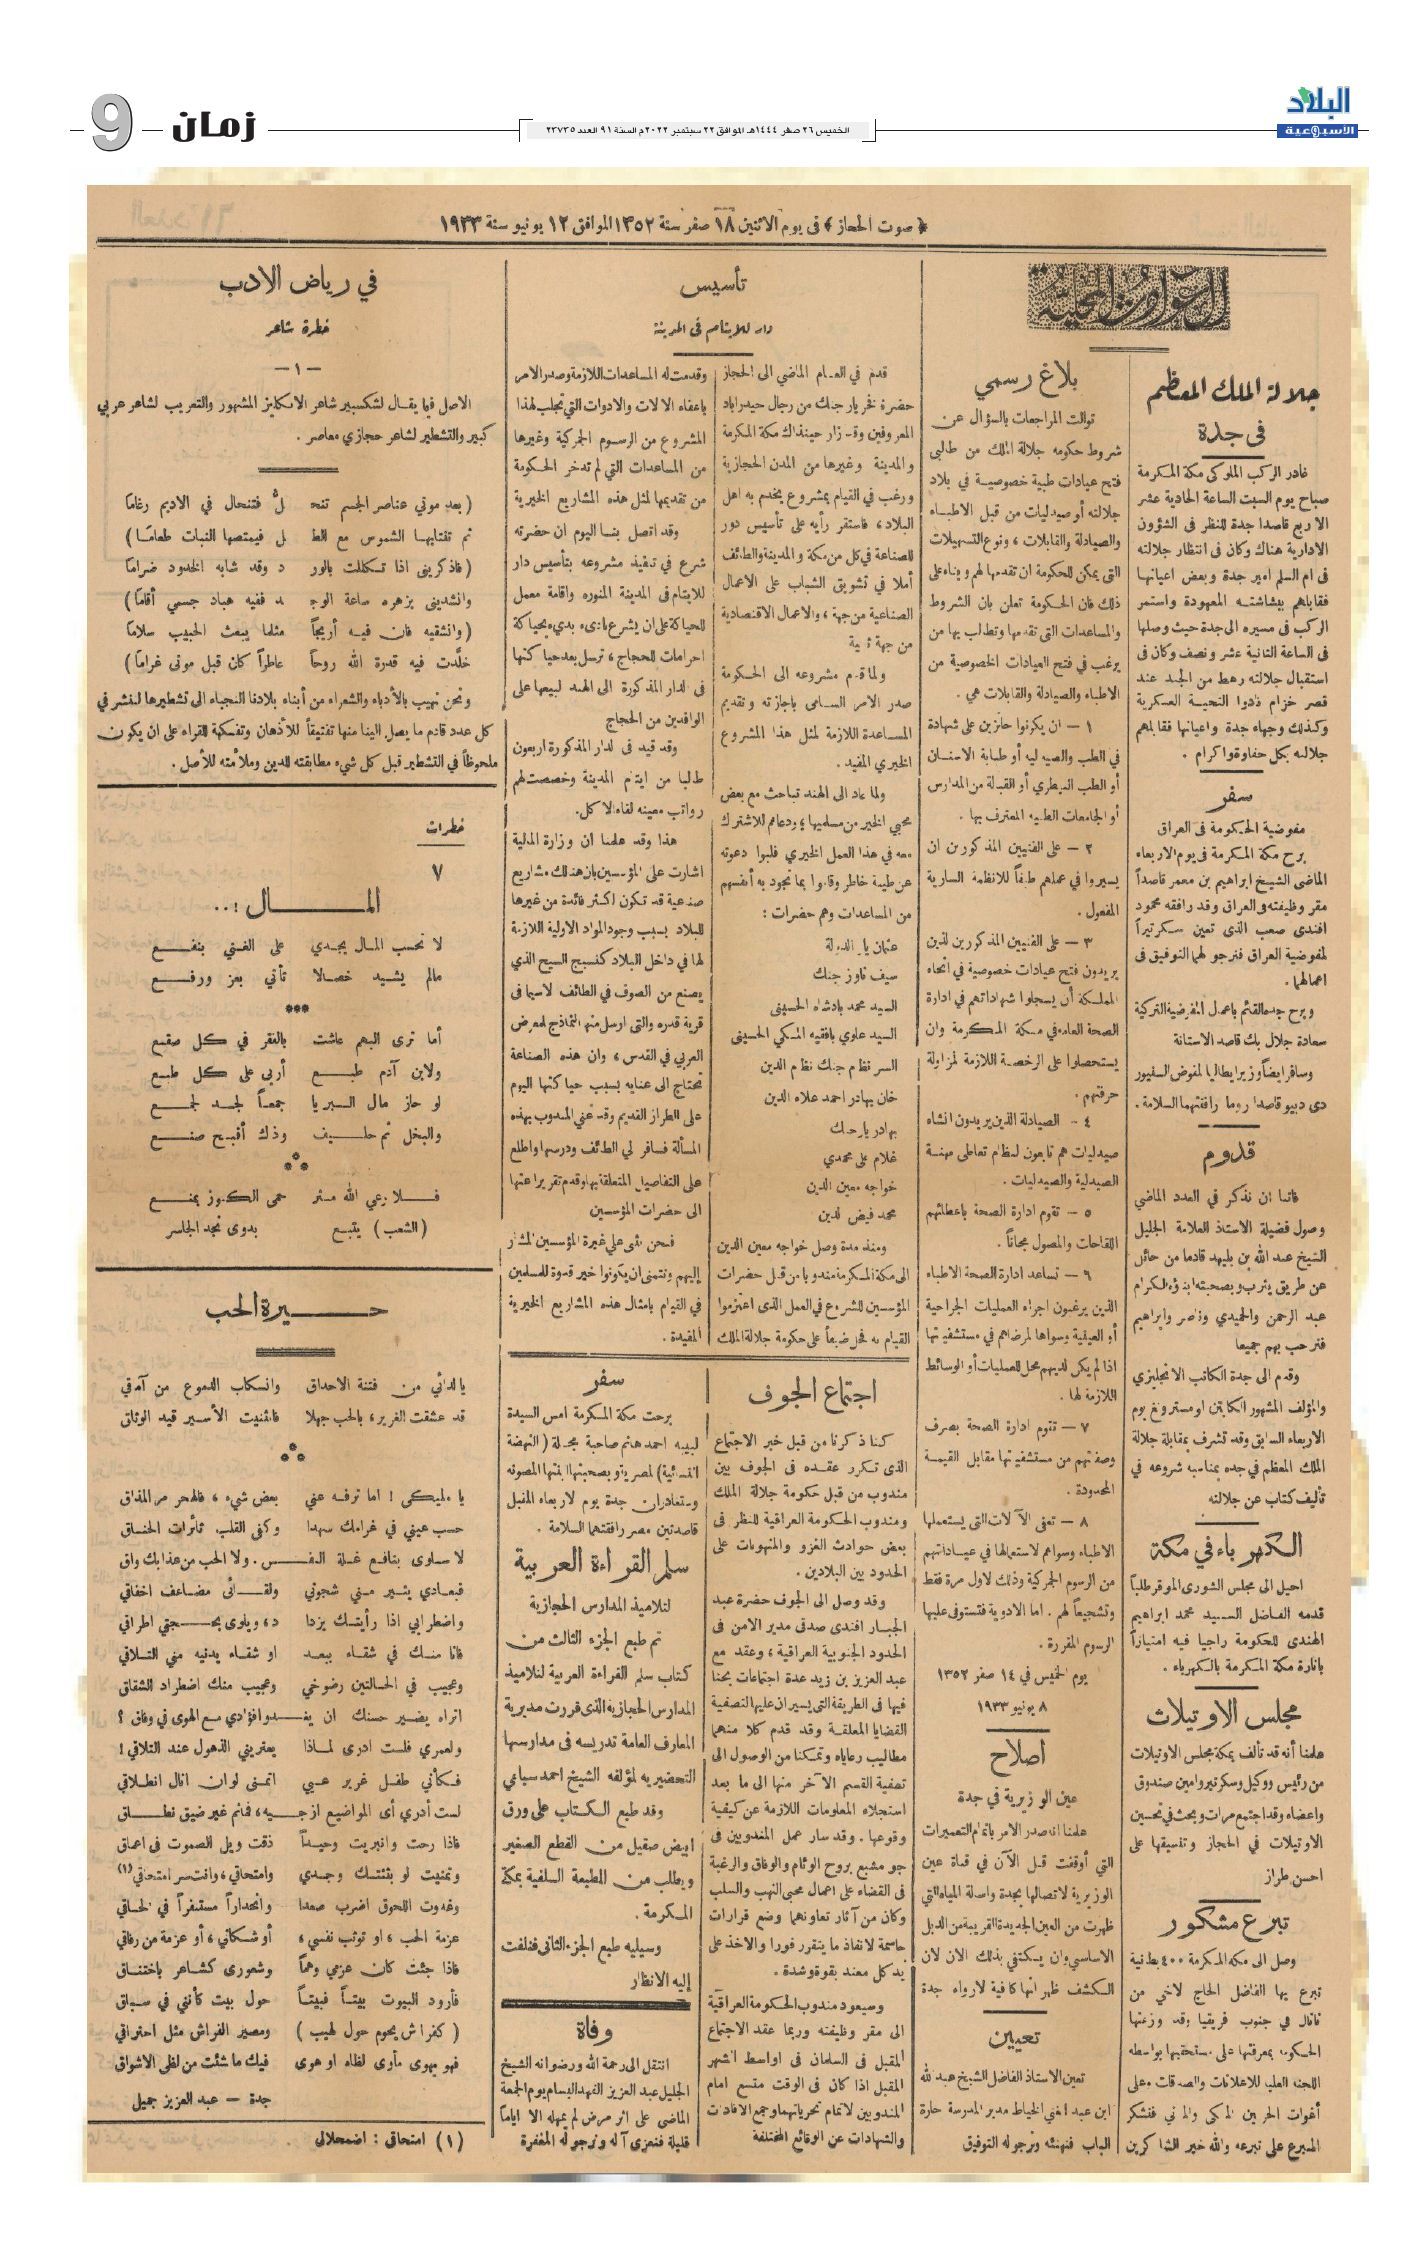 البلاد
الأسبوعية
الخميس ٢٦ صفر ١٤٤٤هـ الموافق ٢٢ سبتمبر ٢٠٢٢م السنة ٩١ العدد ٢٣٧٣٥
زمان
9
﴿ صوت الحجاز ﴾ فى يوم الاثنين ١٨ صفر سنة ١٣٥٢ الموافق ١٢ يونيو سنة ١٩٣٣
الحوادث المحلية
جلالة الملك المعظم
فى جدة
غادر الركب الملوكى مكة المكرمة
صباح يوم السبت الساعة الحادية عشر
الا ربع قاصدا جدة للنظر فى الشؤون
الادارية هناك وكان فى انتظار جلالته
فى ام السلم امير جدة وبعض اعيانها
فقابلهم ببشاشته المعهودة واستمر
الركب فى مسيره الى جدة حيث وصلها
فى الساعة الثانية عشر ونصف وكان فى
استقبال جلالته رهط من الجند عند
قصر خزام فادوا التحية العسكرية
وكذلك وجهاء جدة واعيانها فقابلهم
جلالته بكل حفاوة واكرام .
سفر
مفوضية الحكومة فى العراق
برح مكة المكرمة فى يوم الاربعاء
الماضى الشيخ ابراهيم بن معمر قاصداً
مقر وظيفته فى العراق وقد رافقه محمود
افندى صعب الذى تعين سكرتيراً
لمفوضية العراق فنرجو لهما التوفيق فى
اعمالهما .
وبرح جده القائم باعمال المفوضية التركية
سعادة جلال بك قاصد الاستانة
وسافر ايضاً وزير ايطاليا المفوض السنيور
دى دبيو قاصدا روما رافقتهما السلامة .
قدوم
فاتنا ان نذكر في العدد الماضي
وصول فضيلة الاستاذ العلامة الجليل
الشيخ عبد الله بن بليهد قادما من حائل
عن طريق يثرب وبصحبته ابناؤه الكرام
عبد الرحمن والحميدي وناصر وابراهيم
فنرحب بهم جميعا
وقدم الى جدة الكاتب الانجليزي
والمؤلف المشهور الكابتن اومسترونغ يوم
الاربعاء السابق وقد تشرف بمقابلة جلالة
الملك المعظم في جده بمناسبه شروعه في
تأليف كتاب عن جلالته
الكهرباء في مكة
احيل الى مجلس الشورى الموقر طلباً
قدمه الفاضل السيد محمد ابراهيم
الهندى للحكومة راجيا فيه امتيازاً
بانارة مكة المكرمة بالكهرباء .
مجلس الاوتيلات
علمنا أنه قد تألف بمكة مجلس الاوتيلات
من رئيس ووكيل وسكرتير وامين صندوق
واعضاء وقد اجتمع مرات وبحث في تحسين
الاوتيلات في الحجاز وتنسيقها على
احسن طراز
تبرع مشكور
وصل الى مكة المكرمة ٤٠٠ بطنية
تبرع بها الفاضل الحاج لاخي من
ناتال في جنوب افريقيا وقد وزعتها
الحكومة بمعرفتها على مستحقيها بواسطه
اللجنه العليا للاعانات والصدقات وعلى
أغوات الحرمين المكى والمدني فنشكر
المتبرع على تبرعه والله خير الشاكرين
بلاغ رسمي
توالت المراجعات بالسؤال عن
شروط حكومه جلالة الملك من طالبي
فتح عيادات طبية خصوصية في بلاد
جلالته أو صيدليات من قبل الاطباء
والصيادلة والقابلات ، ونوع التسهيلات
التى يمكن للحكومة ان تقدمها لهم وبناء على
ذلك فان الحكومة تعلن بان الشروط
والمساعدات التى تقدمها وتطلب بها من
يرغب في فتح العيادات الخصوصية من
الاطباء والصيادلة والقابلات هي .
١ – ان يكونوا حائزين على شهادة
في الطب والصيدليه أو طبابة الاسنان
أو الطب البيطري أو القبالة من المدارس
أو الجامعات الطبيه المعترف بها .
٢ – على الفنيين المذكورين ان
يسيروا في عملهم طبقاً للانظمة السارية
المفعول .
٣ – على الفنيين المذكورين الذين
يريدون فتح عيادات خصوصية في انحاء
المملكة أن يسجلوا شهاداتهم في ادارة
الصحة العامه في مكة المكرمة وان
يستحصلوا على الرخصة اللازمة لمزاولة
حرفتهم .
٤ – الصيادلة الذين يريدون انشاء
صيدليات هم تابعون لنظام تعاطى مهنة
الصيدلية والصيدليات .
٥ – تقوم ادارة الصحة باعطائهم
اللقاحات والمصول مجاناً .
٦ – تساعد ادارة الصحة الاطباء
الذين يرغبون اجراء العمليات الجراحية
أو العينية وسواها لمرضاهم في مستشفيتها
اذا لم يكن لديهم محل للعمليات أو الوسائط
اللازمة لها .
٧ – تقوم ادارة الصحة بصرف
وصفتهم من مستشفيتها مقابل القيمة
المحدودة .
٨ – تعفى الآلات التى يستعملها
الاطباء وسواهم لاستعمالها في عياداتهم
من الرسوم الجمركية وذلك لاول مرة فقط
وتشجيعاً لهم . اما الادوية فتستوفى عليها
الرسوم المقررة .
يوم الخميس في ١٤ صفر ١٣٥٢
٨ يونيو ١٩٣٣
اصلاح
عين الوزيرية في جدة
علمنا انه صدر الامر باتمام التعميرات
التي أوقفت قبل الآن في قناة عين
الوزيرية لاتصالها بجدة واسالة المياه التي
ظهرت من العين الجديدة القريبة من الدبل
الاساسي وان يكتفي بذلك الان لان
الكشف ظهر انها كافية لارواء جدة
تعيين
تعين الاستاذ الفاضل الشيخ عبد لله
ابن عبد الغني الخياط مدير المدرسة حارة
الباب فنهنئه ونرجو له التوفيق
تأسيس
دار للايتام فى المدينة
قدم في العام الماضي الى الحجاز
حضرة نخر يار جنك من رجال حيدراباد
المعروفين وقد زار حينذاك مكة المكرمة
والمدينة وغيرها من المدن الحجازية
ورغب في القيام بمشروع يخدم به اهل
البلاد ، فاستقر رأيه على تأسيس دور
للصناعة في كل من مكة والمدينة والطائف
أملا في تشويق الشباب على الاعمال
الصناعية من جهة ، والاعمال الاقتصادية
من جهة ثانية
ولما قدم مشروعه الى الحكومة
صدر الامر السامى باجازته وتقديم
المساعدة اللازمة لمثل هذا المشروع
الخيري المفيد .
ولما عاد الى الهند تباحث مع بعض
محبي الخير من مسلميها ، ودعاهم للاشتراك
معه في هذا العمل الخيري فلبوا دعوته
عن طيبة خاطر وقاموا بما تجود به أنفسهم
من المساعدات وهم حضرات :
عثمان يار الدولة
سيف نواز جنك
السيد محمد بادشاه الحسينى
السيد علوي بافقيه المكي الحسينى
السر نظام جنك نظام الدين
خان بهادر احمد علاء الدين
بهادر يار جنك
غلام على محمدي
خواجه معين الدين
محمد فيض الدين
ومنذ مدة وصل خواجه معين الدين
الى مكة المكرمة مندوبا من قبل حضرات
المؤسسين للشروع في العمل الذى اعتزموا
القيام به فحل ضيفاً على حكومة جلالة الملك
وقدمت له المساعدات اللازمة وصدر الامر
باعفاء الالات والادوات التي تجلب لهذا
المشروع من الرسوم الجمركية وغيرها
من المساعدات التي لم تدخر الحكومة
من تقديمها لمثل هذه المشاريع الخيرية
وقد اتصل بنا اليوم ان حضرته
شرع في تنفيذ مشروعه بتأسيس دار
للايتام فى المدينة المنوره واقامة معمل
للحياكة على ان يشرع بادىء بدىء بحياكة
احرامات للحجاج ، ترسل بعد حياكتها
فى الدار المذكورة الى الهند لبيعها على
الوافدين من الحجاج
وقد قيد فى الدار المذكورة اربعون
طالبا من ايتام المدينة وخصصت لهم
رواتب معينه لقاء الاكل .
هذا وقد علمنا ان وزارة المالية
اشارت على المؤسسين بان هنالك مشاريع
صناعية قد تكون اكثر فائدة من غيرها
للبلاد بسبب وجود المواد الاولية اللازمة
لها في داخل البلاد كنسيج السيح الذي
يصنع من الصوف في الطائف لاسيما فى
قرية قدره والتى ارسل منها النماذج لمعرض
العربي في القدس ، وان هذه الصناعة
تحتاج الى عنايه بسبب حياكتها اليوم
على الطراز القديم وقد عني المندوب بهذه
المسألة فسافر لى الطائف ودرسها واطلع
على التفاصيل المتعلقة بها وقدم تقريرا عنها
الى حضرات المؤسسين
فنحن نثنى على غيرة المؤسسين المشار
إليهم ونتمنى ان يكونوا خير قدوة للمسلمين
في القيام بامثال هذه المشاريع الخيرية
المفيدة .
اجتماع الجوف
كنا ذكرنا من قبل خبر الاجتماع
الذى تكرر عقده فى الجوف بين
مندوب من قبل حكومة جلالة الملك
ومندوب الحكومة العراقية للنظر فى
بعض حوادث الغزو والمنهوبات على
الحدود بين البلادين .
وقد وصل الى الجوف حضرة عبد
الجبار افندى صدقى مدير الامن فى
الحدود الجنوبية العراقية ، وعقد مع
عبد العزيز بن زيد عدة اجتماعات بحثا
فيها في الطريقة التى يسيران عليها لتصفية
القضايا المعلقة وقد قدم كلا منهما
مطاليب رعاياه وتمكنا من الوصول الى
تصفية القسم الآخر منها الى ما بعد
استجلاء المعلومات اللازمة عن كيفية
وقوعها . وقد سار عمل المندوبين فى
جو مشبع بروح الوئام والوفاق والرغبة
فى القضاء على اعمال محبى النهب والسلب
وكان من آثار تعاونهما وضع قرارات
حاسمة لانفاذ ما يتقرر فورا والاخذ على
يد كل معتد بقوة وشدة .
وسيعود مندوب الحكومة العراقية
الى مقر وظيفته وربما عقد الاجتماع
المقبل فى السلمان فى اواسط الشهر
المقبل اذا كان فى الوقت متسع امام
المندوبين لاتمام تحرياتهما وجمع الافادات
والشهادات عن الوقائع المختلفة
سفر
برحت مكة المكرمة امس السيدة
لبيبه احمد هانم صاحبة مجلة ( النهضة
النسائية ) المصرية وبصحبتها ابنتها المصونه
وستغادران جدة يوم الاربعاء المقبل
قاصدتين مصر رافقتهما السلامة .
سلم القراءة العربية
لتلاميذ المدارس الحجازية
تم طبع الجزء الثالث من
كتاب سلم القراءة العربية لتلاميذ
المدارس الحجازيه الذى قررت مديرية
المعارف العامة تدريسه فى مدارسها
التحضيريه لمؤلفه الشيخ احمد سباعي
وقد طبع الكتاب على ورق
ابيض صقيل من القطع الصغير
ويطلب من المطبعة السلفية بمكة
المكرمة .
وسيليه طبع الجزء الثانى فنلفت
إليه الانظار
وفاة
انتقل الى رحمة الله ورضوانه الشيخ
الجليل عبد العزيز الفهد البسام يوم الجمعة
الماضى على اثر مرض لم يمهله الا اياماً
قليلة فنعزى آله ونرجو له المغفرة
في رياض الادب
خطرة شاعر
– ١ –
الاصل فيما يقال لشكسبير شاعر الانكليز المشهور والتعريب لشاعر عربي
كبير والتشطير لشاعر حجازي معاصر .
( بعد موتي عناصر الجسم تنحـ ـلُّ فتنحال في الاديم رغاما
ثم تفتابها الشموس مع الطـ ـل فيمتصها النبات طعامًا )
( فاذكريني اذا تكللت بالور د وقد شابه الخدود ضراما
وانشديني بزهره ساعة الوجـ ـد ففيه هباد جسمي أقاما )
( وانشقيه فان فيه أريجاً مثلما يبعث الحبيب سلاما
خلّدت فيه قدرة الله روحاً عاطراً كان قبل موتى غراما )
ونحن نهيب بالأدباء والشعراء من أبناء بلادنا النجباء الى تشطيرها لننشر في
كل عدد قادم ما يصل الينا منها تفتيقاً للأذهان وتفكهة للقراء على ان يكون
ملحوظاً في التشطير قبل كل شيء مطابقته للدين وملاءمته للأصل .
خطرات
٧
المال ؛..
لا تحسب المال يجدي على الغني بنفـع
مالم يشيد خصالا تأتي بعز ورفـع
***
أما ترى البهم عاشت بالفقر في كل صقـع
ولابن آدم طبـع أربى على كل طبـع
لو حاز مال البرايا جمعاً لجد لجمـع
والبخل ثم حليـف وذك أقبح صنـع
***
فـلا رعي الله مثر حمى الكنوز بمنـع
(الشعب) يتبع بدوى نجد الجاسر
حيرة الحب
يالدائي من فتنة الاحداق وانسكاب الدموع من آماقي
قد عشقت الغرير ، بالحب جهلا فانثنيت الأسير قيد الوثاق
***
يا مليكى ! اما ترفه عني بعض شيء ، فالهجر مر المذاق
حسب عيني في غرامك سهدا وكفى القلب ثائرات الخناق
لا سلوى بنافع غلة النفـس . ولا الحب من عذابك واق
فبعادي يثير مني شجوني ولقـائى مضاعف اخفاقي
واضطرابي اذا رأيتك يزدا د ، ويلوى بحجتي اطراقي
فانا منك في شقاء ببعد او شقاء يدنيه مني التلاقي
وعجيب في الحالتين رضوخي وعجيب منك اضطراد الشقاق
اتراه يضير حسنك ان يغـدو افؤادي مع الهوى في وفاق ؟
ولعمري فلست ادرى لماذا يعتريني الذهول عند التلاقي !
فكأني طفل غرير عيي اتمنى لو ان انال انطلاقي
لست أدري أى المواضيع ازجـيه ، فمانم غير ضيق نطـاق
فاذا رحت وانبريت وحيداً ذقت ويل الصموت في اعماق
وتمنيت لو بثثتك وجـدي وامتحاقي ، وانت سر امتحاقي (١)
وغدوت اللحوق اضرب صعدا وانحداراً مستنفراً في لحاقي
عزمة الحب ، او توثب نفسي ، أو شكاتي ، أو عزمة من رفاقي
فاذا جئت كان عزمي وهماً وشعورى كشاعر باختناق
فأرود البيوت بيتـاً فبيتـاً حول بيت كأنني في سباق
( كفراش يحوم حول لهيب ) ومصير الفراش مثل احتراقي
فهو يهوى مأوى لظاه او هوى فيك ما شئت من لظى الاشواق
جدة – عبد العزيز جميل
(١) امتحاقى : اضمحلالى .